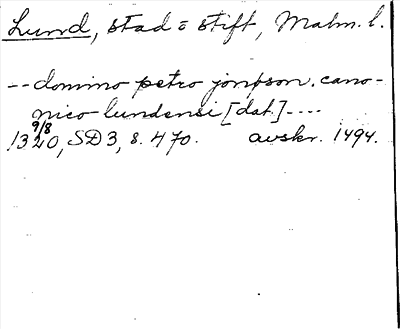 Lund, stad o stift, Malm. l.
-- domino petro jonsson. cano-
nico lundensi [dat.] ----
9/8
1320, SD 3, s. 470. avskr. 1494.